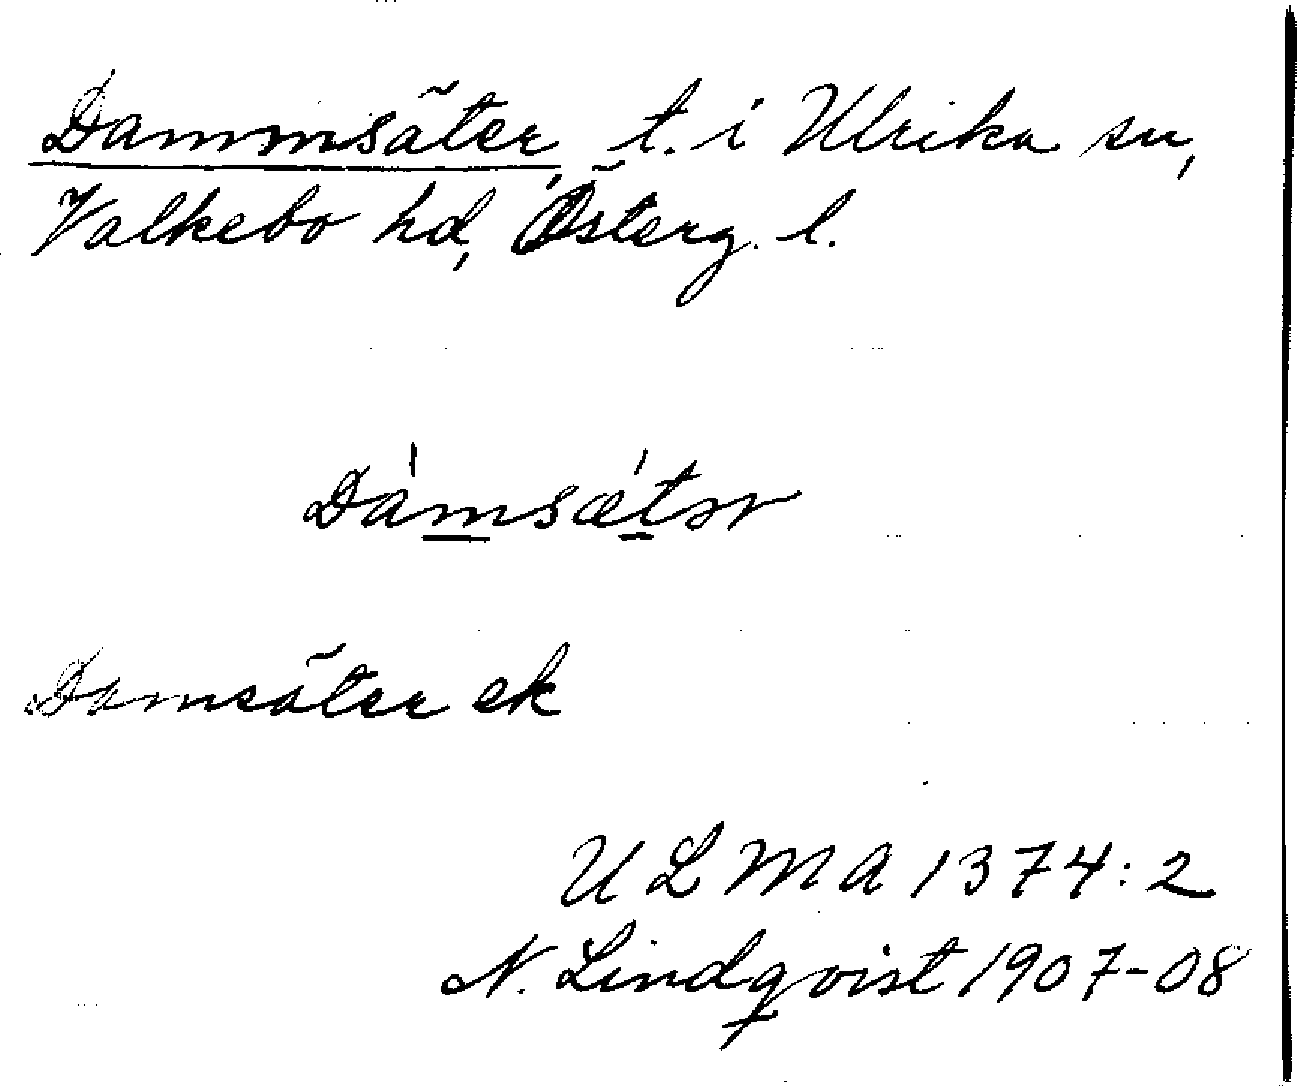 Dammsäter, t. i Ulrika sn,
Valkebo hd, Österg. l.
Dámsǽtər
Damsäter ek
ULMA 1374:2
N. Lindqvist 1907-08